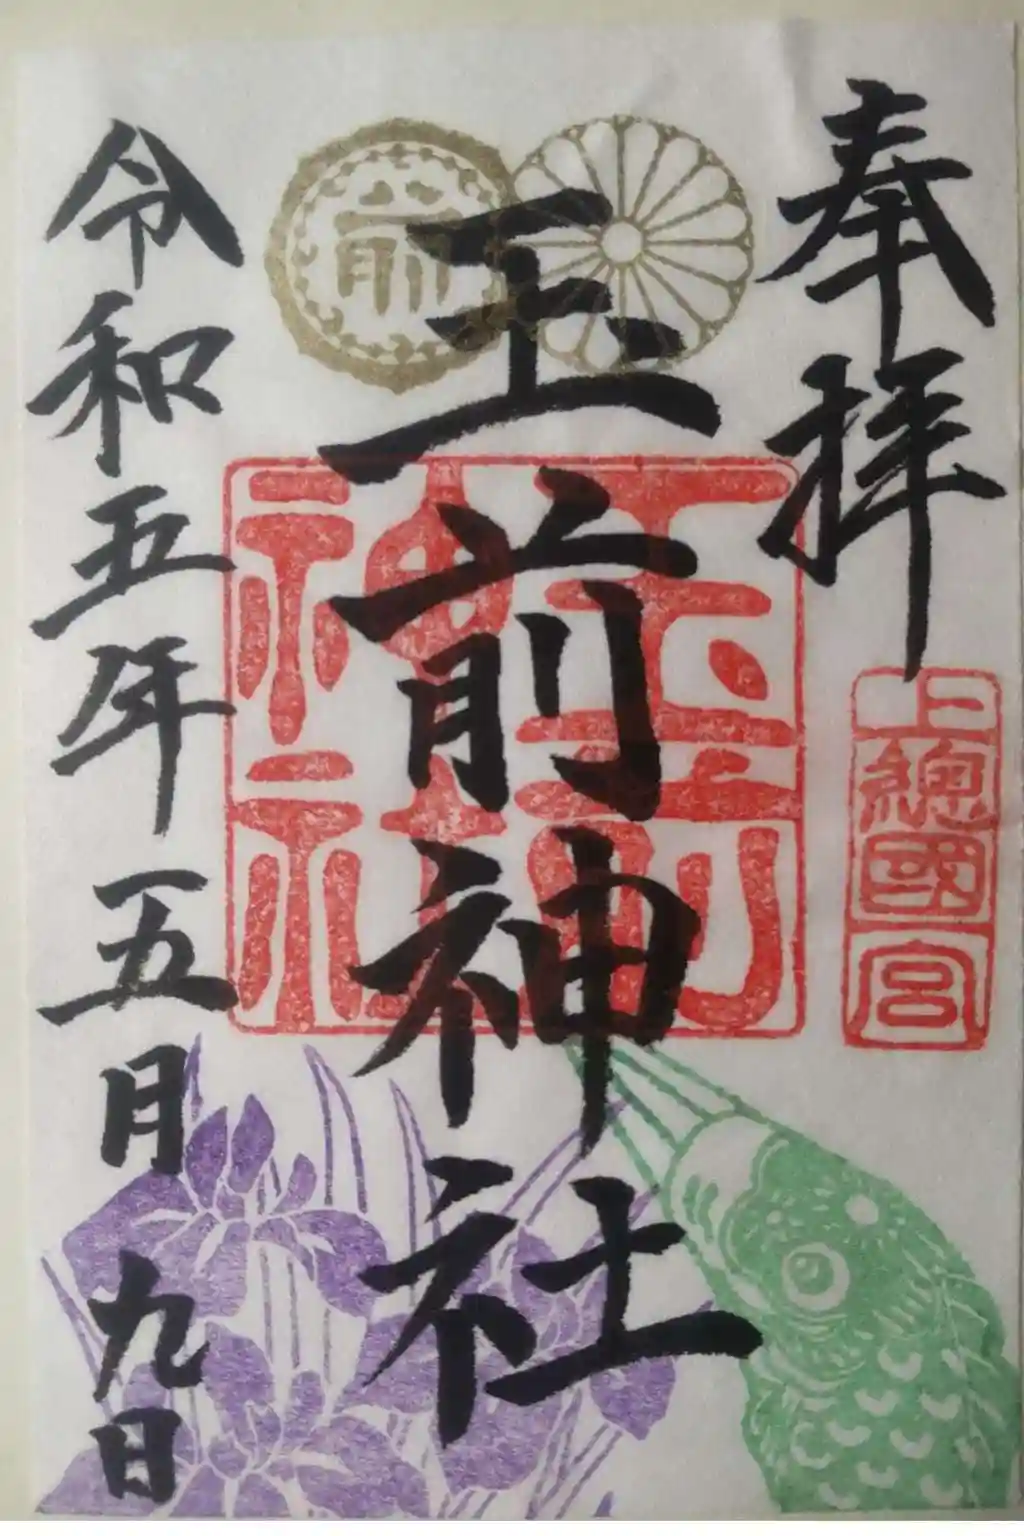 奉拝
上總國一宮
玉前神社
玉前神社
前
令和五年五月九日